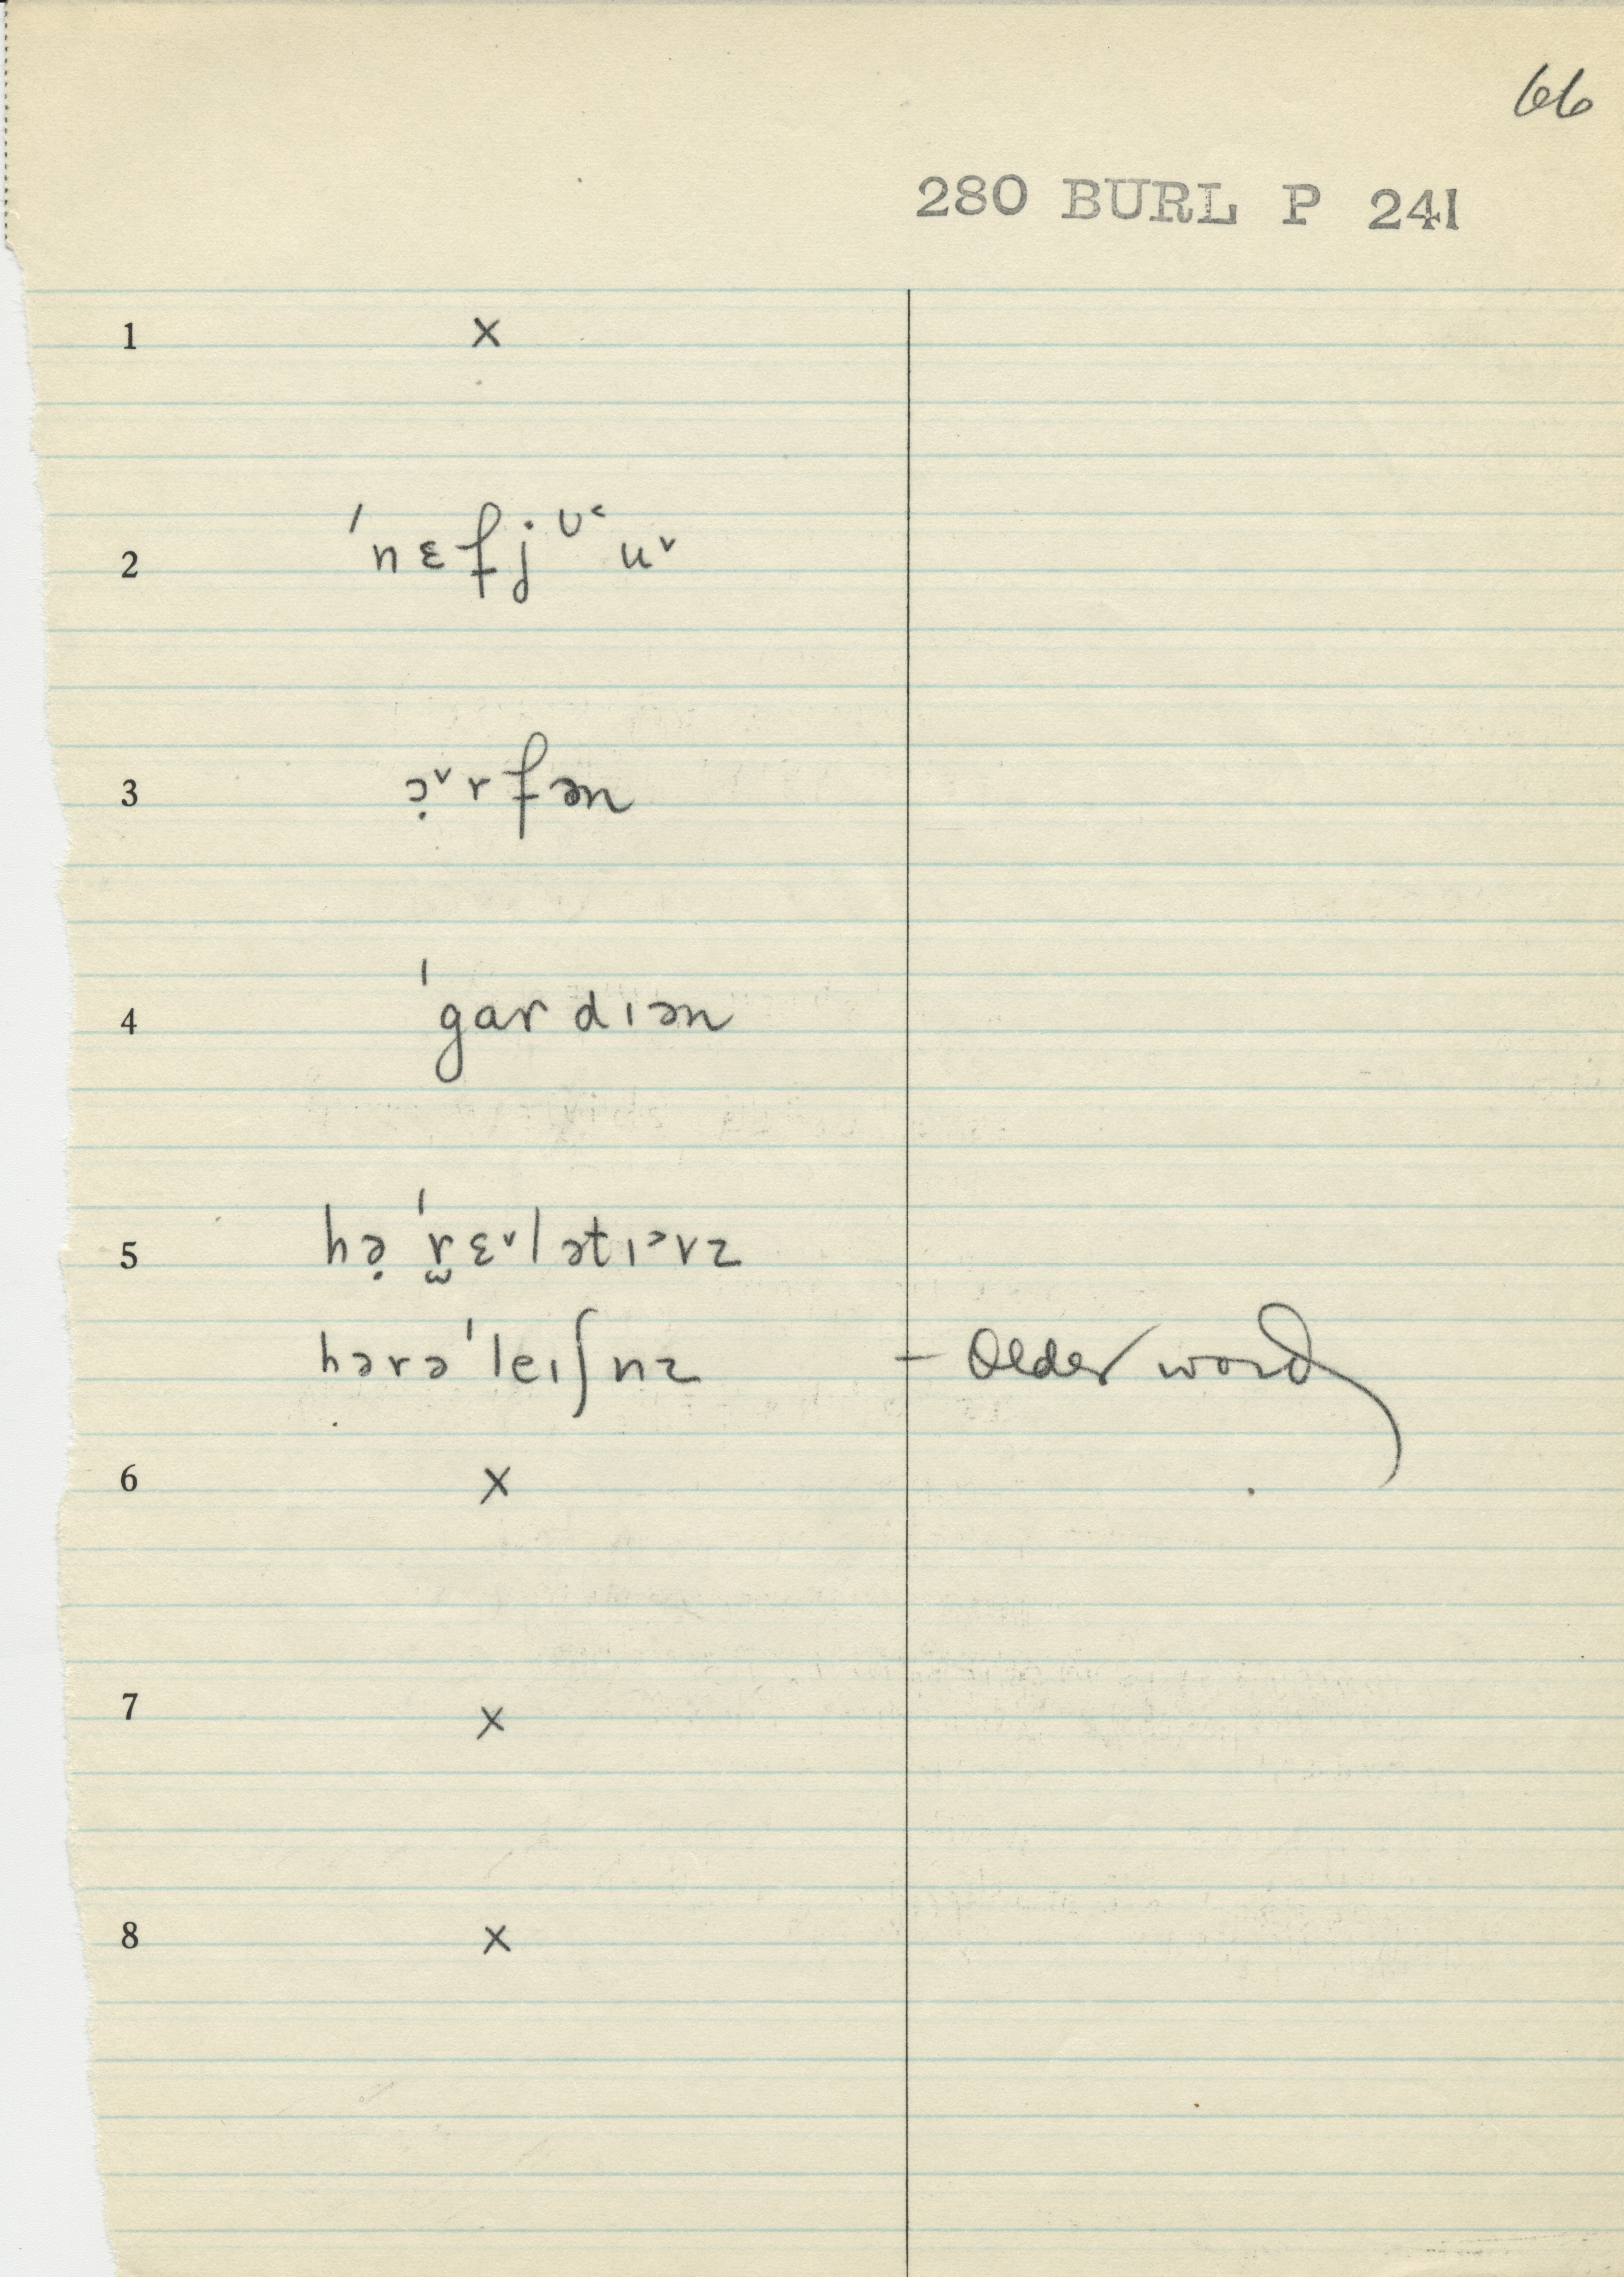 66
280 BURL P 241
1 ×
2 ˈnɛfjᶷ˂uᵛ
3 ɔ̣ᵛrfən
4 ˈgardɪən
5 hə̣ ˈr̫ɛᵛlətɪᵊrz
hərəˈleɪʃnz – Older word
6 ×
7 ×
8 ×